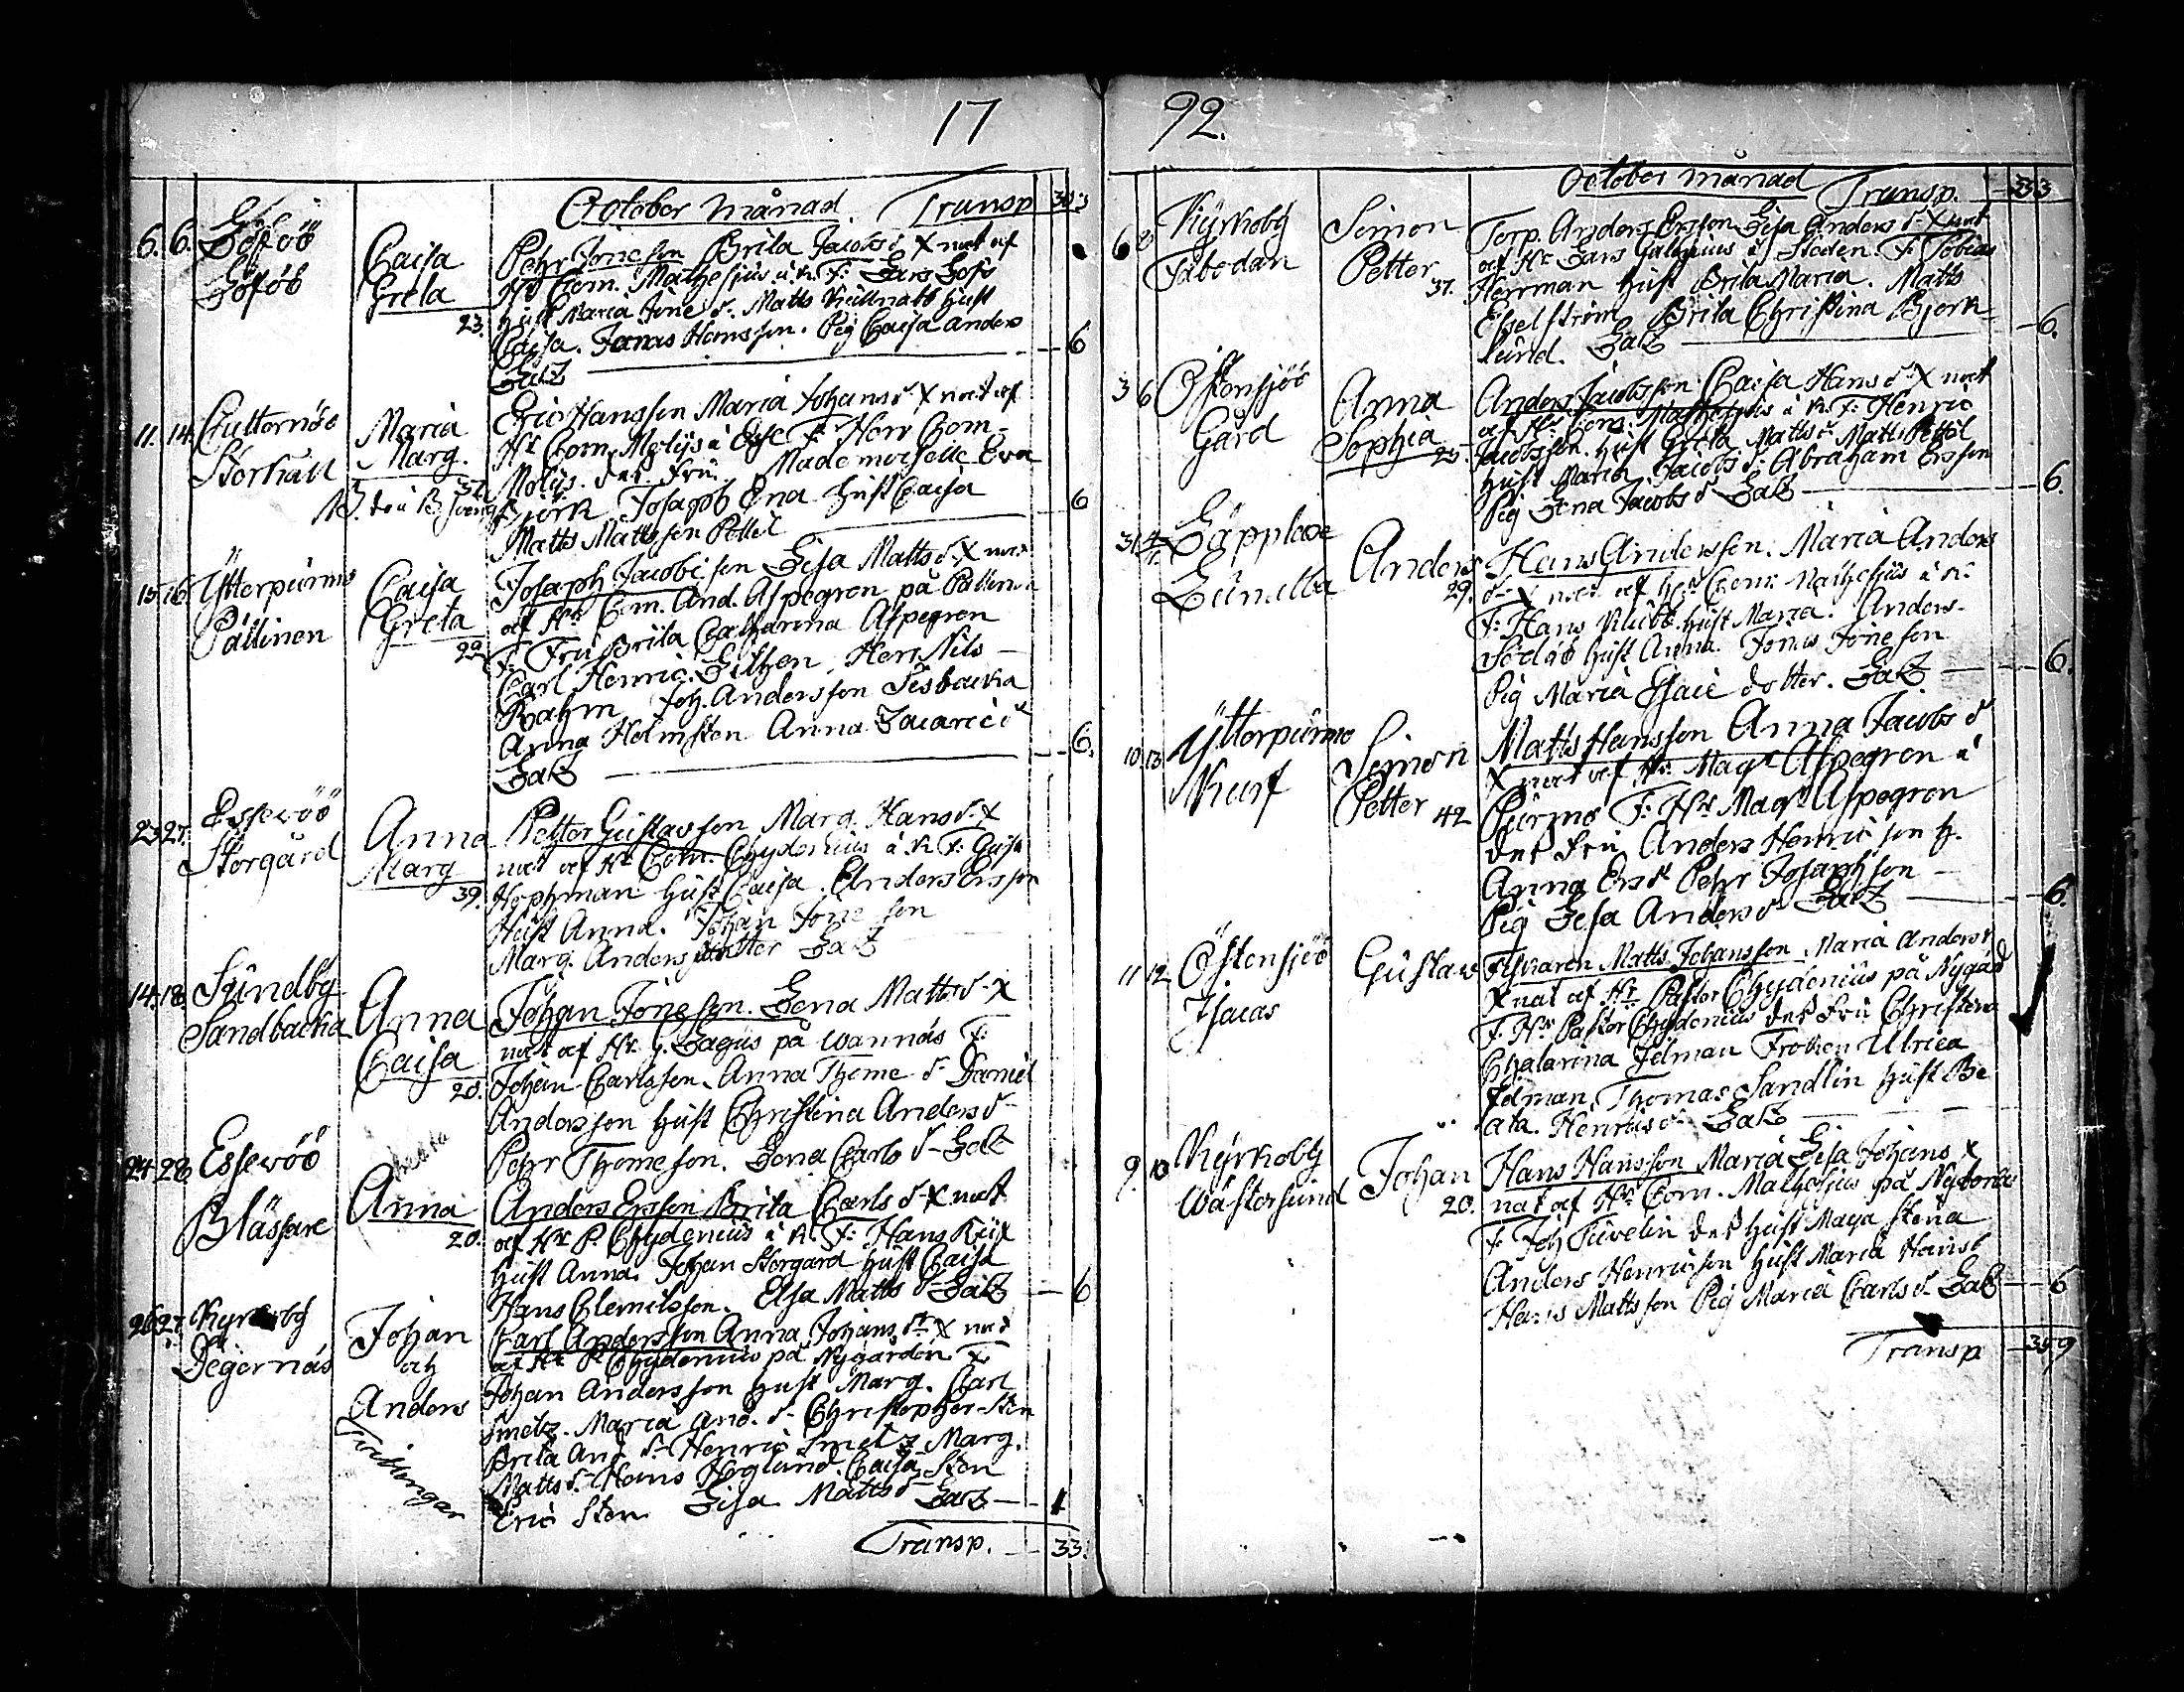 17
October månad. Transp 30:3
6. 6. Esswöö
Löfös
Caisa
Greta
23.
Pehr Jönesson Brita Jacobsd X nat af
Hr Com. Mathesius à K. F:
Hust Maria Jöned. Matts Hust
Caisa. Jonas Hansson. Pig Caisa Anders
Lab 6
11. 14.
Storkall
Maria
Marg.
Eric Hansson Maria Johansd X nat af
Hr Com. Molijs à Esse F: Herr Com-
Molijs. des Fru. Mademoiselle Eva
Björk Josaph Ena Hust Caisa
Matts Mattsson Pettil 6
15. 16. Ytterpurmo
Pättinen
Caisa
Greta
22.
Josaph Jacobsson Lisa Mattsd X nat
af Hr Com. And. Aspegren på
F: Fru Brita Catharina Aspegren
Carl Henric. Herr Nils
Rahm Joh. Andersson Sisbacka
Anna Holmsten Anna Zacarie d
Lab 6.
23 27. Essewöö
Storgård
Anna
Marg
39.
Petter Gustavsson Marg. Hansd. X
nat af Hr Com. Chydenius à K. F:
Hophman Hust Caisa. Anders Ersson
Hust Anna. Johan Jöneson
Marg. Andersdotter Lab
14. 18. Sundby
Sandbacka
Anna
Caisa
20.
Johan Jöneson. Lena Mattsd. X
nat af Hr G. Lagus på Wännäs F:
Johan Carlsson. Anna Thomed. Daniel
Andersson Hust Christina Andersd
Pehr Thomeson. Lena Carlsd Lab
24 28 Essewöö
Blässare
Anna
20.
Anders Ersson Brita Carlsd X nat
af Hr P. Chydenius à K. F: Hans
Hust Anna. Johan Storgård Hust Caisa
Hans Clemilsson. Elsa Mattsd Lab 6
26 27. Kyrkoby
Degernäs
Johan
och
Anders
Tvillingar
Carl Andersson Anna Johansdr X nat
af Hr P Chydenius på Nygården F:
Johan Andersson Hust Marg. Carl
Smetz. Maria And. d. Christopher Sten
Brita And d. Henric Smetz Marg.
Mattsd. Hans Höglund Caisa Sten
Eric Sten Lisa Mattsd Lab 1
Transp. 33:
92.
October månad Transp. 333
6 8 Kyrkoby
Fäbodan
Simon
Petter
37.
Torp. Anders Ersson Lisa Andersd X nat
af Hr Lars Galenius i Staden. F: Tobias
Herrman Hust Brita Maria. Matts
Ehelström Brita Christina Björk-
lund. Lab 6.
3 6 Östensjöö
Gård
Anna
Sophia
Anders Jacobsson Caisa Hansd X nat
af Hr Com. Mathesius à K. F: Henric
Jacobsson. Hust Greta Mattsd Matts Pettil
Hust Maria Jacobsd. Abraham Ersson
Pig Lena Jacobsd Lab 6.
31 Läpplax
Anders
29.
Hans Andersson. Maria Anders
d X nat af Hr Com: Mathesius à K:
F: Hans Klubb Hust Maria. Anders
Södöö Hust Anna. Jonas Jöneson
Pig Maria Esaie dotter. Lab 6.
10 13 Ytterpurmo
Simon
Petter 42
Matts Hansson Anna Jacobsd
X nat af Hr Magr Aspegren à
Purmo F: Hr Magr Aspegren
des Fru Anders Henricson H.
Anna Ersd Pehr Josaphson
Pig Lisa Andersd Lab 6.
11 12 Östensjöö
Isacas
Gustaw
Fiskaren Matts Johansson Maria Andersd
X nat af Hr Pastor Chydenius på Nygård
F. Hr Pastor Chydenius des Fru Christina
Chatarina Idman Fröken Ulrica
Idman, Thomas Sandlin Hust Be
ata. Henricsd. Lab
9. 10 Kyrkoby
Wästersund
Johan
20.
Hans Hansson Maria Lisa Johans X
nat af Hr Com. Mathesius på
F. Joh Juvelin des Hust Maya Stena
Anders Henricson Hust Maria Hansd
Hans Mattsson Pig Maria Carlsd. Lab 6
Transp 359